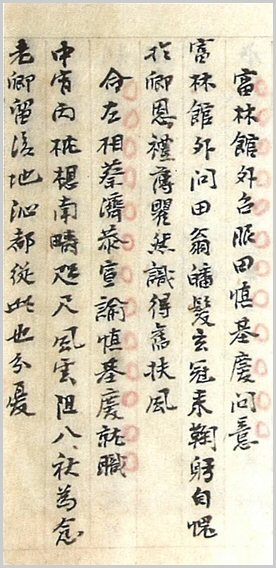 富林館外召田慎基慶問意
富林館外問田翁皤髮玄冠来鞠躬自愧
於卿恩禮薄瞿然識得舊扶風
命左相蔡濟恭宣諭慎基慶就職
中宵丙枕想南疇咫尺風雲阻八秋為念
老卿留後地沁都從此也分憂